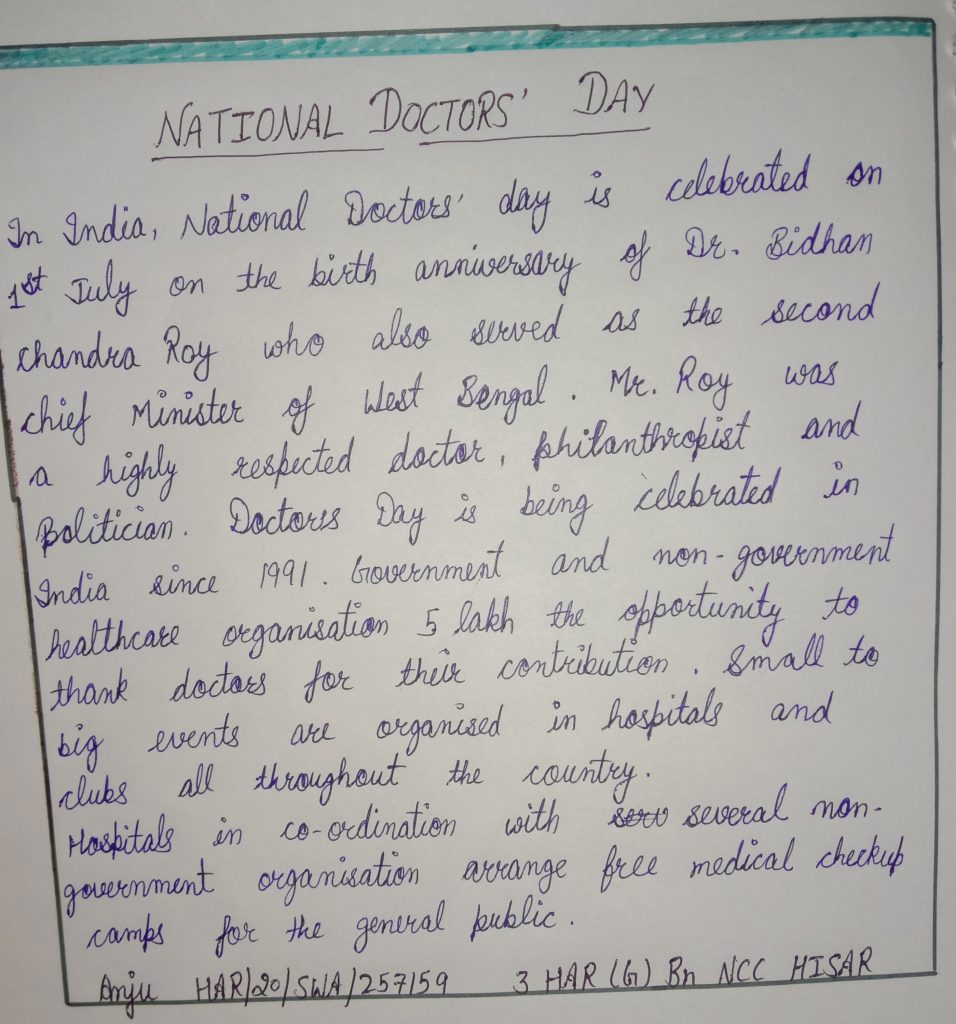 NATIONAL DOCTORS' DAY
In India, National Doctors' day is celebrated on
1st July on the birth anniversary of Dr. Bidhan
Chandra Roy who also served as the second
chief Minister of West Bengal. Mr. Roy was
a highly respected doctor, philanthropist and
Politician. Doctorss Day is being celebrated in
India since 1991. Government and non-government
healthcare organisation 5 lakh the opportunity to
thank doctors for their contribution. Small to
big events are organised in hospitals and
clubs all throughout the country.
Hospitals in co-ordination with several non-
government organisation arrange free medical checkup
camps for the general public.
Anju HAR/20/SWA/257159 3 HAR (G) Bn NCC HISAR